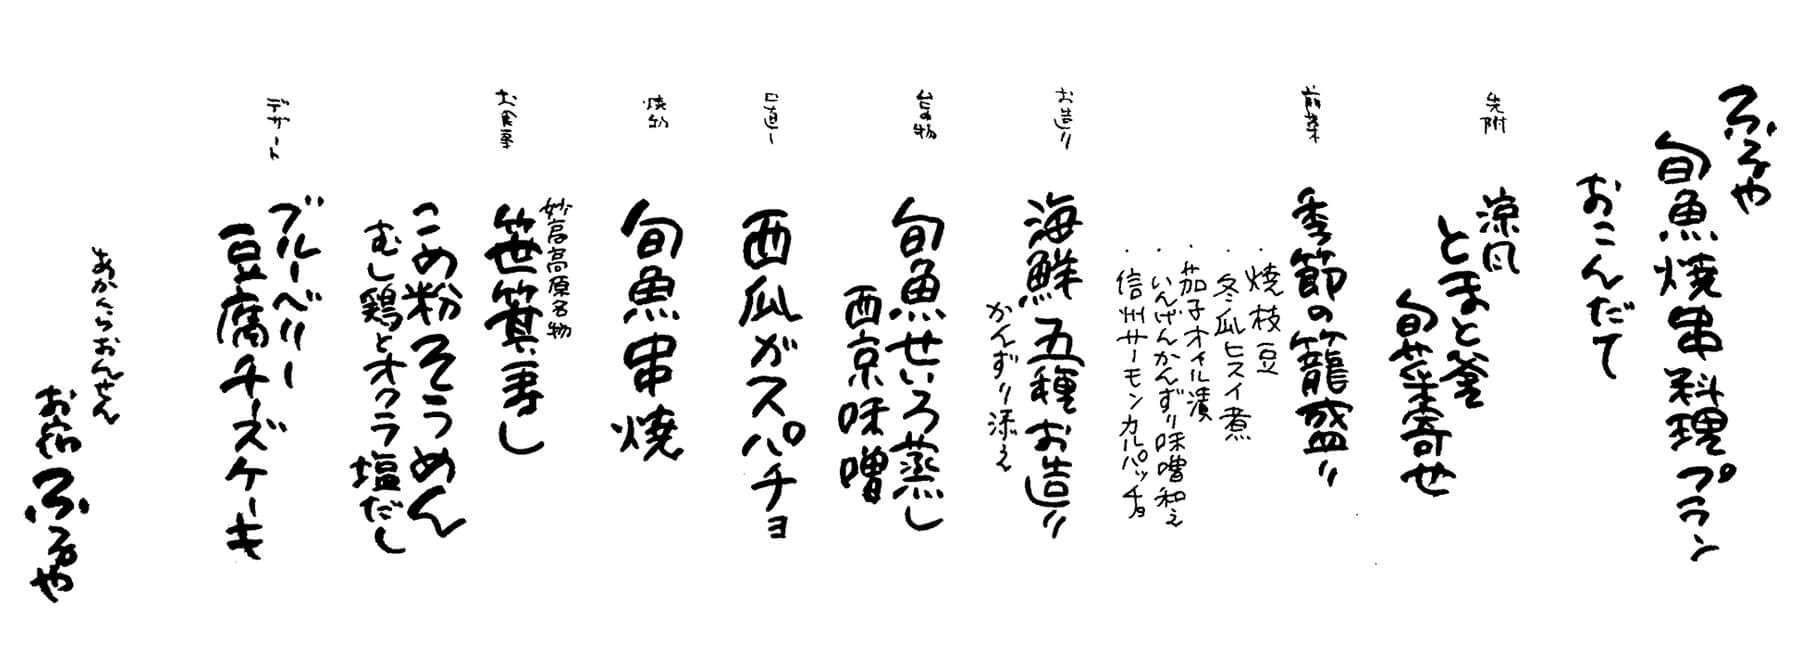 ふるや
旬魚焼串料理プラン
おこんだて
先附
涼風
とまと釜
旬菜寄せ
前菜
季節の籠盛り
・焼枝豆
・冬瓜ヒスイ煮
・茄子オイル漬
・いんげんかんずり味噌和え
・信州サーモンカルパッチョ
お造り
海鮮五種お造り
かんずり添え
台の物
旬魚せいろ蒸し
西京味噌
口直し
西瓜ガスパチョ
焼物
旬魚串焼
お食事
妙高高原名物
笹箕寿し
こめ粉そうめん
むし鶏とオクラ塩だし
デザート
ブルーベリー
豆腐チーズケーキ
あかくらおんせん
お宿ふるや